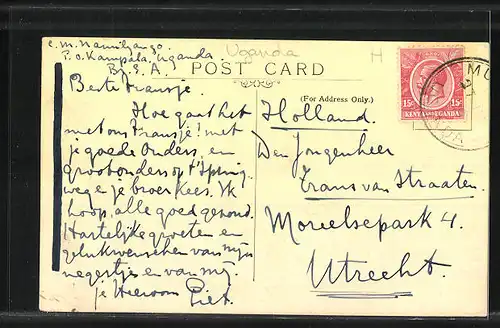 c.m. Namilyango
P.O. Kampala, Uganda
B.E.A.
Uganda
H
POST CARD
(For Address Only.)
15c 15c
KENYA UGANDA
Beste Fransje.
Hoe gaat het
met ons Fransje! met
je goede Ouders, en
grootouders op 't Spring
wege je broer Kees. Ik
hoop, alle goed gezond.
Hartelijke groeten en
gelukwenschen van mijn
negertjes en van mij
je Heeroom Piet.
Holland.
Den Jongenheer
Frans van Straaten
Moreelsepark 4.
Utrecht.